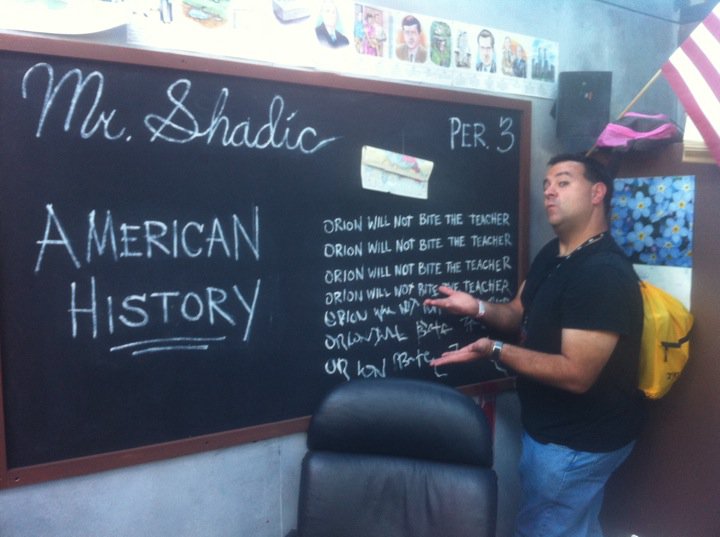 Mr. Shadic
PER. 3
AMERICAN
HISTORY
ORION WILL NOT BITE THE TEACHER
ORION WILL NOT BITE THE TEACHER
ORION WILL NOT BITE THE TEACHER
ORION WILL NOT BITE THE TEACHER
ORION WILL NOT
ORION Bate
OR ION Bate